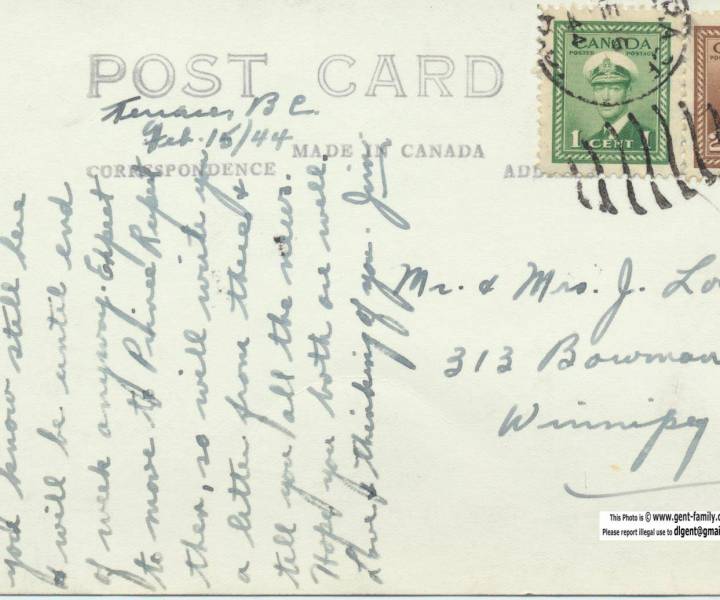 POST CARD
Terrace, B.C.
Feb. 15/44
MADE IN CANADA
CORRESPONDENCE
know still here
& will be until end
of week anyway. Expect
to move to Prince Rupert
then, so will write you
a letter from there &
tell you all the news.
Hope you both are well.
Love & thinking of you. Jim
CANADA
1 CENT 1
Mr. & Mrs. J.
313 Bowman
Winnipeg
This Photo is © www.gent-family.c
Please report illegal use to dlgent@gmai